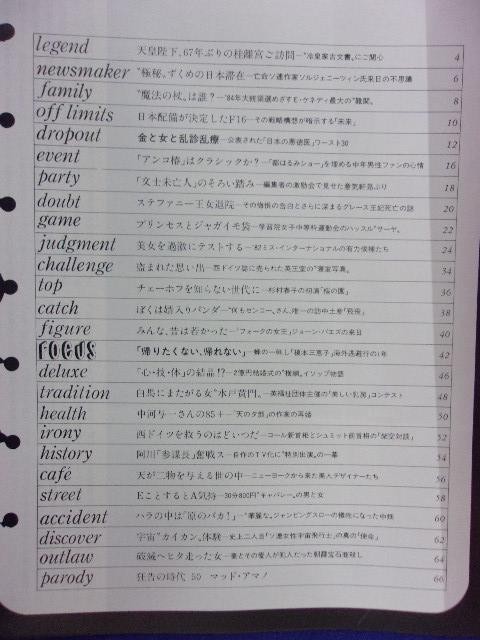 legend 天皇陛下、67年ぶりの桂離宮ご訪問―"冷泉家古文書"にご関心 4
newsmaker "極秘"ずくめの日本滞在―亡命ソ連作家ソルジェニーツィン氏来日の不思議 6
family "魔法の杖"は誰?―'84年大統領選めざすE・ケネディ最大の"難関" 8
off limits 日本配備が決定したF16―その戦略構想が暗示する「未来」 10
dropout 金と女と乱診乱療―公表された「日本の悪徳医」ワースト30 12
event 「アンコ椿」はクラシックか?―「都はるみショー」を埋める中年男性ファンの心情 16
party 「文士未亡人」のそろい踏み―編集者の激励会で見せた意気軒昂ぶり 18
doubt ステファニー王女退院―その悔恨の告白とさらに深まるグレース王妃死亡の謎 20
game プリンセスとジャガイモ袋―学習院女子中等科運動会のハッスル"サーヤ" 22
judgment 美女を過激にテストする―'82ミス・インターナショナルの有力候補たち 24
challenge 盗まれた思い出―西ドイツ誌に売られた英王室の"寝室写真" 34
top チェーホフを知らない世代に―杉村春子の初演「桜の園」 36
catch ぼくは婿入りパンダ―"何もセンニー"さん、唯一の訪中土産「飛飛」 38
figure みんな、昔は若かった―"フォークの女王"ジョーン・バエズの来日 40
FOCUS 「帰りたくない、帰れない」―蜂の一刺し「榎本三恵子」海外逃避行の1年 42
deluxe 「心・技・体」の結晶!?―2億円結婚式の"横綱"イソップ物語 46
tradition 白馬にまたがる女"水戸黄門"―英福祉団体主催の「美しい乳房」コンテスト 48
health 中河与一さんの85+―「天の夕顔」の作家の再婚 50
irony 西ドイツを救うのはどいつだ―コール新首相とシュミット前首相の「架空対談」 52
history 阿川「参謀長」奮戦ス―自作のTV化に"特別出演"の一幕 54
café 天が二物を与える世の中―ニューヨークから来た美人デザイナーたち 56
street EことするとA気持―30分800円"キャバレー"の男と女 58
accident ハラの中は「原のバカ!」―"華麗な"ジャンピングスローの犠牲になった中畑 60
discover 宇宙"カイカン"体験―史上二人目「ソ連女性宇宙飛行士」の真の「使命」 62
outlaw 破滅へヒタ走った女―妻とその愛人が犯人だった朝霞宝石商殺し 64
parody 狂告の時代 55 マッド・アマノ 66